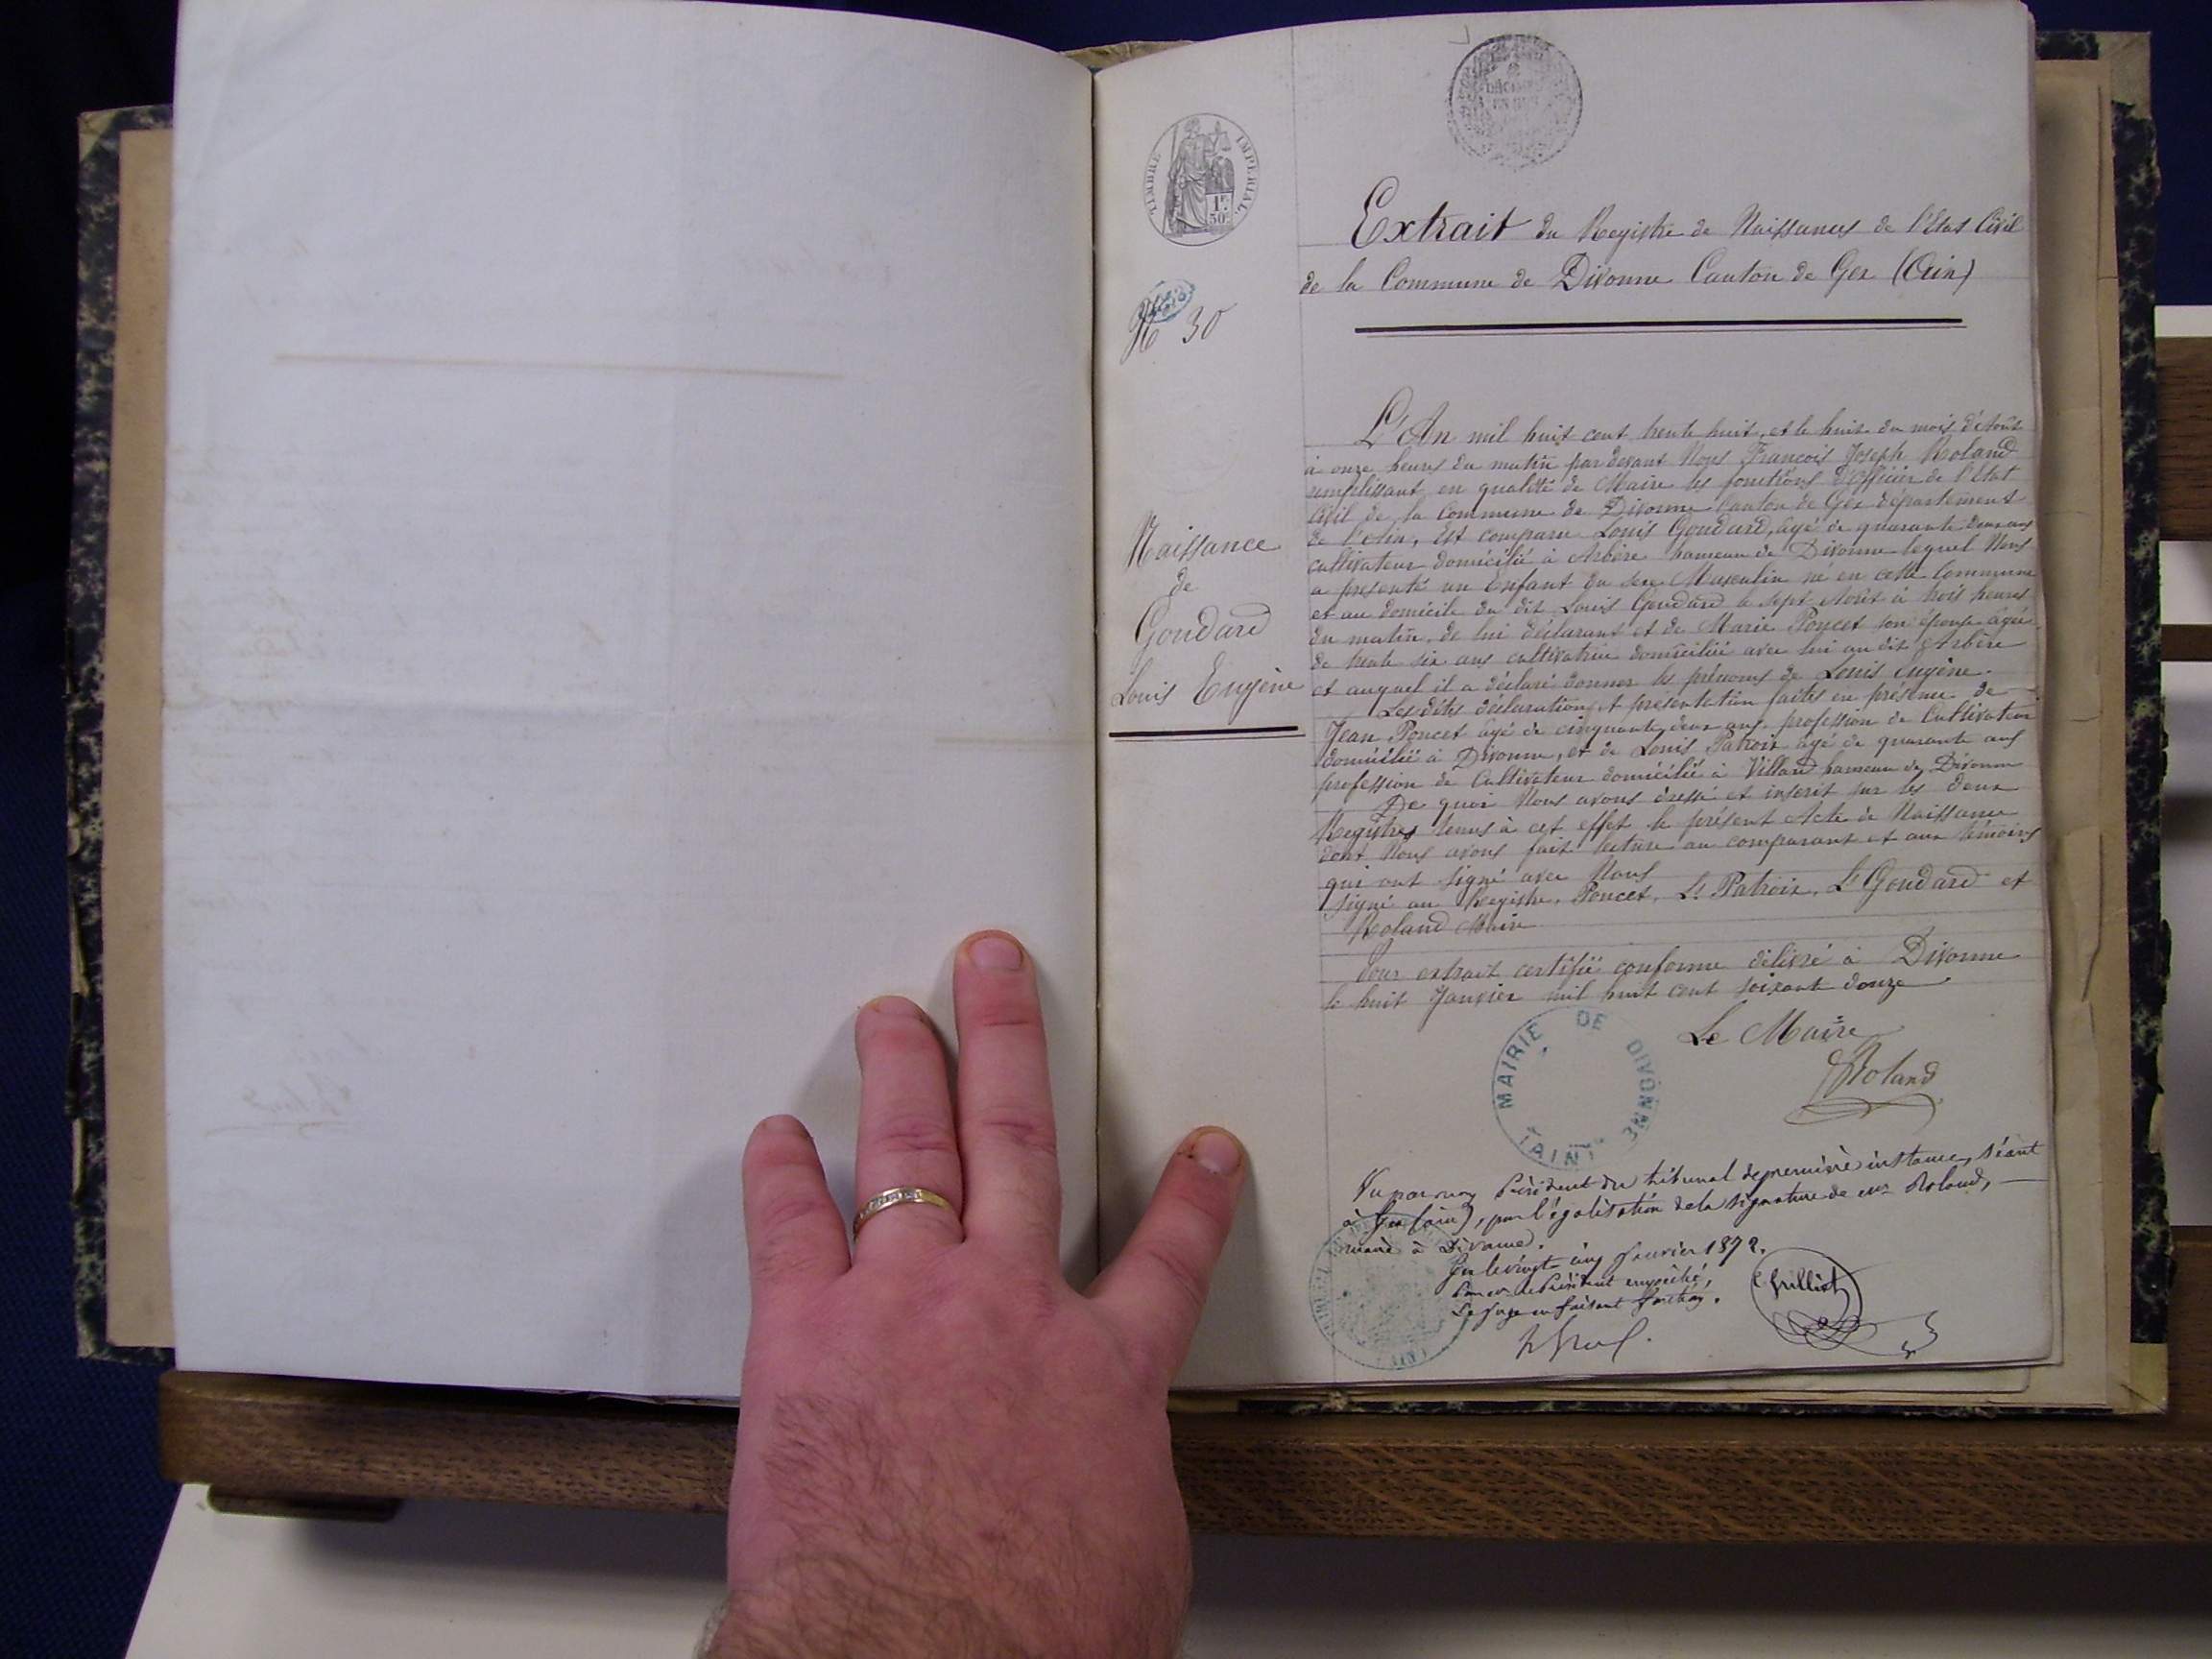 TIMBRE IMPERIAL
1F. 50C
2
DÉCIMES
EN SUS
Extrait du Registre de Naissances de l'Etat Civil
de la Commune de Divonne Canton de Gex (Ain)
No 30
Naissance
de
Goudard
Louis Eugène
L'An mil huit cent trente huit, et le huit du mois d'Août
à onze heures du matin par devant Nous François Joseph Roland
remplissant en qualité de Maire les fonctions d'officier de l'Etat
Civil de la Commune de Divonne Canton de Gex département
de l'Ain, Est comparu Louis Goudard, âgé de quarante deux ans
cultivateur domicilié à Arbère hameau de Divonne lequel Nous
a présenté un Enfant du sexe Masculin né en cette Commune
et au domicile du dit Louis Goudard le sept Août à trois heures
du matin, de lui déclarant et de Marie Poncet son épouse âgée
de trente six ans cultivatrice domiciliée avec lui au dit Arbère
et auquel il a déclaré donner les prénoms de Louis Eugène.
Les dites déclaration et présentation faites en présence de
Jean Poncet âgé de cinquante deux ans profession de Cultivateur
domicilié à Divonne, et de Louis Patroix âgé de quarante ans
profession de Cultivateur domicilié à Villard hameau de Divonne
De quoi Nous avons dressé et inscrit sur les deux
Registres tenus à cet effet le présent Acte de Naissance
dont Nous avons fait lecture au comparant et aux témoins
qui ont signé avec Nous
signé au Registre, Poncet, Ls Patroix, Ls Goudard et
Roland Maire
Pour extrait certifié conforme délivré à Divonne
le huit Janvier mil huit cent soixant douze
Le Maire
Roland
MAIRIE DE DIVONNE
(AIN)
Vu par nous Président du tribunal de première instance, séant
à Gex (ain), pour légalisation de la signature de mr Roland,
maire à Divonne.
Gex le vingt-cinq Janvier 1872.
Pour le Président empêché,
Le Juge en faisant fonction.